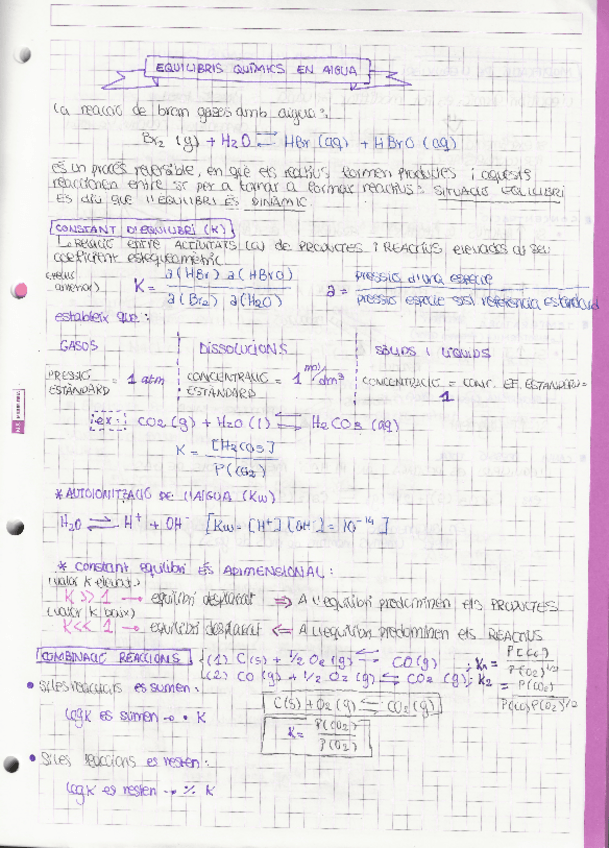 EQUILIBRIS QUÍMICS EN AIGUA
La reacció de brom gasós amb aigua:
Br2 (g) + H2O ⇌ HBr (aq) + HBrO (aq)
és un procés reversible, en què els reactius formen productes i aquests
reaccionen entre si per a tornar a formar reactius: SITUACIÓ EQUILIBRI
Es diu que l'EQUILIBRI ÉS DINÀMIC.
CONSTANT D'EQUILIBRI (K)
↳ Relació entre ACTIVITATS (a) de PRODUCTES i REACTIUS elevades al seu
coeficient estequiomètric
anterior) K = a(HBr) a(HBrO) / a(Br2) a(H2O)
a = pressió d'una espècie / pressió espècie sist referència estàndard
estableix que:
GASOS
DISSOLUCIONS
SÒLIDS I LÍQUIDS
PRESSIÓ ESTÀNDARD = 1 atm
CONCENTRACIÓ ESTÀNDARD = 1 mol/dm3
CONCENTRACIÓ = CONC. EF. ESTÀNDARD = 1
ex: CO2 (g) + H2O (l) ⇌ H2CO3 (aq)
K = [H2CO3] / P(CO2)
* AUTOIONITZACIÓ DE L'AIGUA (Kw)
H2O ⇌ H+ + OH- [Kw = [H+] [OH-] = 10-14]
* Constant equilibri ÉS ADIMENSIONAL:
(valor K elevat)
K >> 1 → equilibri desplaçat ⇒ A l'equilibri predominen els PRODUCTES
(valor K baix)
K << 1 → equilibri desplaçat ⇐ A l'equilibri predominen els REACTIUS
COMBINACIÓ REACCIONS
(1) C(s) + 1/2 O2 (g) ⇌ CO(g) ; K1 = P(CO) / P(O2)1/2
(2) CO (g) + 1/2 O2 (g) ⇌ CO2 (g) ; K2 = P(CO2) / P(CO) P(O2)1/2
• Si les reaccions es sumen:
C(s) + O2 (g) ⇌ CO2 (g)
log K es sumen → • K
K = P(CO2) / P(O2)
• Si les reaccions es resten:
log K es resten → % K